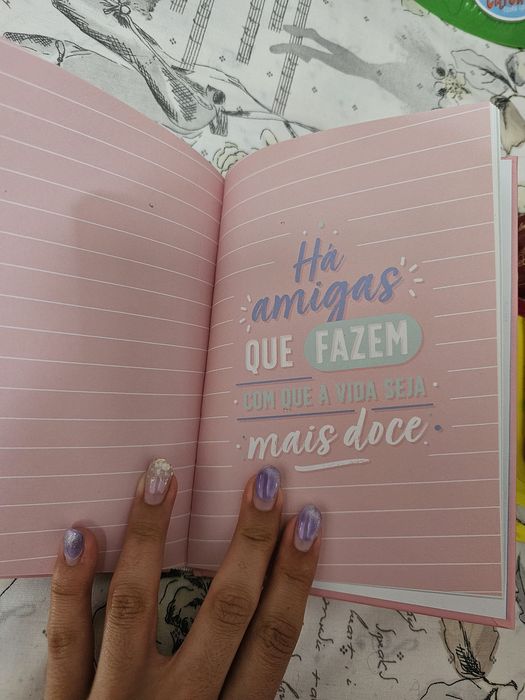 Há
amigas
QUE FAZEM
COM QUE A VIDA SEJA
mais doce